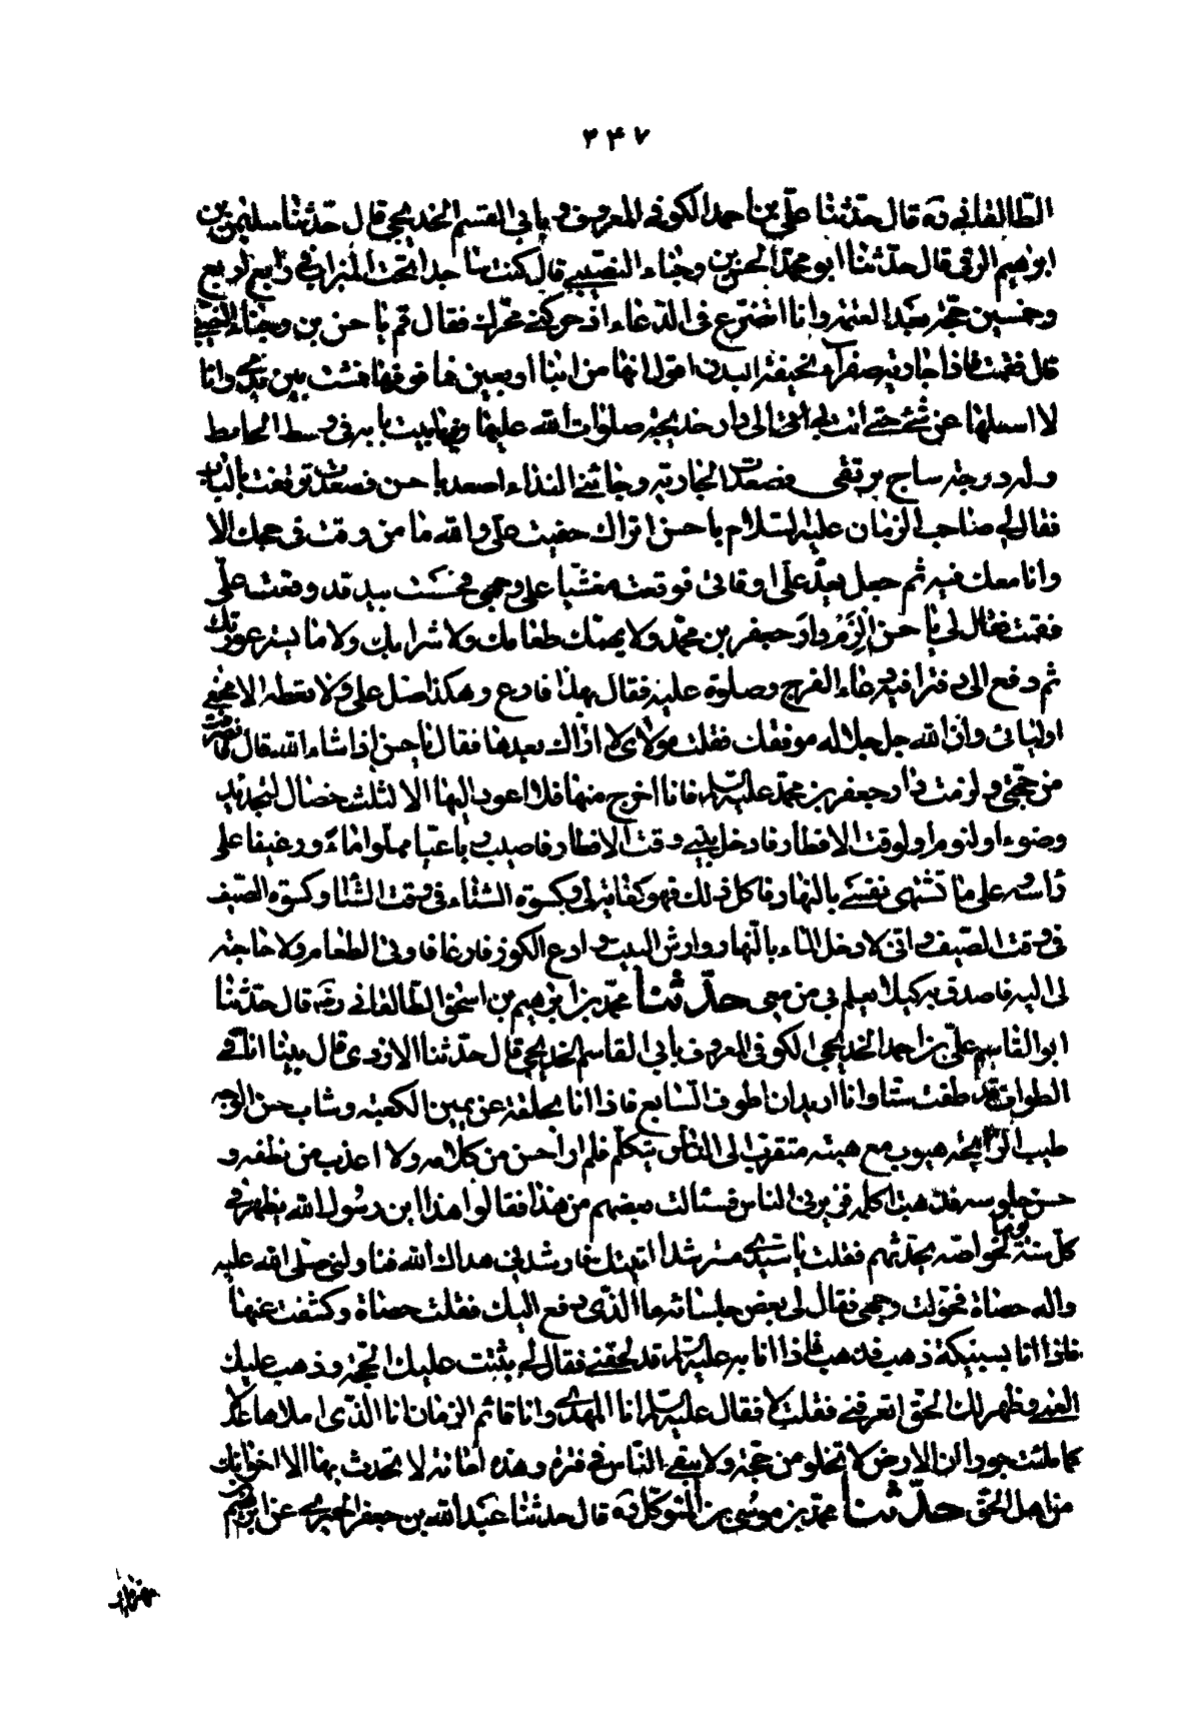 ۲۴۷
الطالقانی ره قال حدثنا علی بن احمد الکوفی المعروف بابی القسم الخدیجی قال حدثنا سلیمن بن
ابرهیم الرقی قال حدثنا ابو محمد الحسن بن وجناء النصیبی قال کنت ساجدا تحت المیزاب فی رابع اربع
وخمسین حجة بعد العتمة وانا اتضرع فی الدعاء اذ حرکنی محرک فقال قم یا حسن بن وجناء النصیبی
قال فقمت فاذا جاریة صفراء نحیفة البدن اقول انها من ابنا اربعین فما فوقها فمشت بین یدی وانا
لا اسئلها عن شئ حتی اتت بی الی دار خدیجة صلوات الله علیها وفیها بیت بابه فی وسط الحایط
وله درجة ساج یرتقی فصعدت الجاریة وجائنی النداء اصعد یا حسن فصعدت فوقفت بالباب
فقال لی صاحب الزمان علیه السلام یا حسن اتراک خفیت علی والله ما من وقت فی حجک الا
وانا معک فیه ثم جعل یعد علی اوقاتی فوقعت مغشیا علی وجهی فحسست بید قد وقعت علی
فقمت فقال لی یا حسن الزم دار جعفر بن محمد ولا یهمنک طعامک ولا شرابک ولا ما یستر عورتک
ثم دفع الی دفترا فیه دعاء الفرج وصلوة علیه فقال بهذا فادع وهکذا صل علی ولا تعطه الا محقی
اولیائی وان الله جل جلاله موفقک فقلت مولای لا اراک بعدها فقال یا حسن اذا شاء الله قال فانصرفت
من حجتی ولزمت دار جعفر بن محمد علیه السلم فانا اخرج منها فلا اعود الیها الا لثلث خصال لتجدید
وضوء او لنوم او لوقت الافطار فادخل بیتی وقت الافطار فاصیب رباعیا مملوا ماء ورغیفا علی
راسه علی ما تشتهی نفسی بالنهار فاکل ذلک فهو کفایة لی وکسوة الشتاء فی وقت الشتا وکسوة الصیف
فی وقت الصیف وانی لادخل الماء بالنهار وارش البیت وادع الکوز فارغا واوتی الطعام ولا حاجة
لی الیه فاصدق به لیلا لئلا یعلم بی من معی حدثنا محمد بن ابرهیم بن اسحق الطالقانی رضه قال حدثنا
ابو القاسم علی بن احمد الخدیجی الکوفی المعروف بابی القاسم الخدیجی قال حدثنا الازدی قال بینا انا فی
الطواف قد طفت ستا وانا ارید ان اطوف السابع فاذا انا بحلقة عن یمین الکعبة وشاب حسن الوجه
طیب الرائحة هیوب مع هیبته متقرب الی الناس یتکلم فلم ار احسن من کلامه ولا اعذب من نطقه و
حسن جلوسه فذهبت اکلمه فزبرنی الناس فسئالت بعضهم من هذا فقالوا هذا ابن رسول الله یظهر فی
کل سنة یوما لخواصه یحدثهم فقلت یا سیدی مسترشدا اتیتک فارشدنی هداک الله فناولنی صلی الله علیه
واله حصاة فحولت وجهی فقال لی بعض جلسائه ما الذی دفع الیک فقلت حصاة وکشفت عنها
فاذا انا بسبیکة ذهب فذهبت فاذا انا به علیه السلم قد لحقنی فقال لی ثبتت علیک الحجة وذهب علیک
العمی وظهر لک الحق اتعرفنی فقلت لا فقال علیه السلم انا المهدی وانا قائم الزمان انا الذی املاها عدلا
کما ملئت جورا ان الارض لا تخلو من حجة ولا یبقی الناس فی فترة وهذه امانة لا تحدث بها الا اخوانک
من اهل الحق حدثنا محمد بن موسی بن المتوکل ره قال حدثنا عبد الله بن جعفر الحمیری عن ابرهیم بن
مهزیار